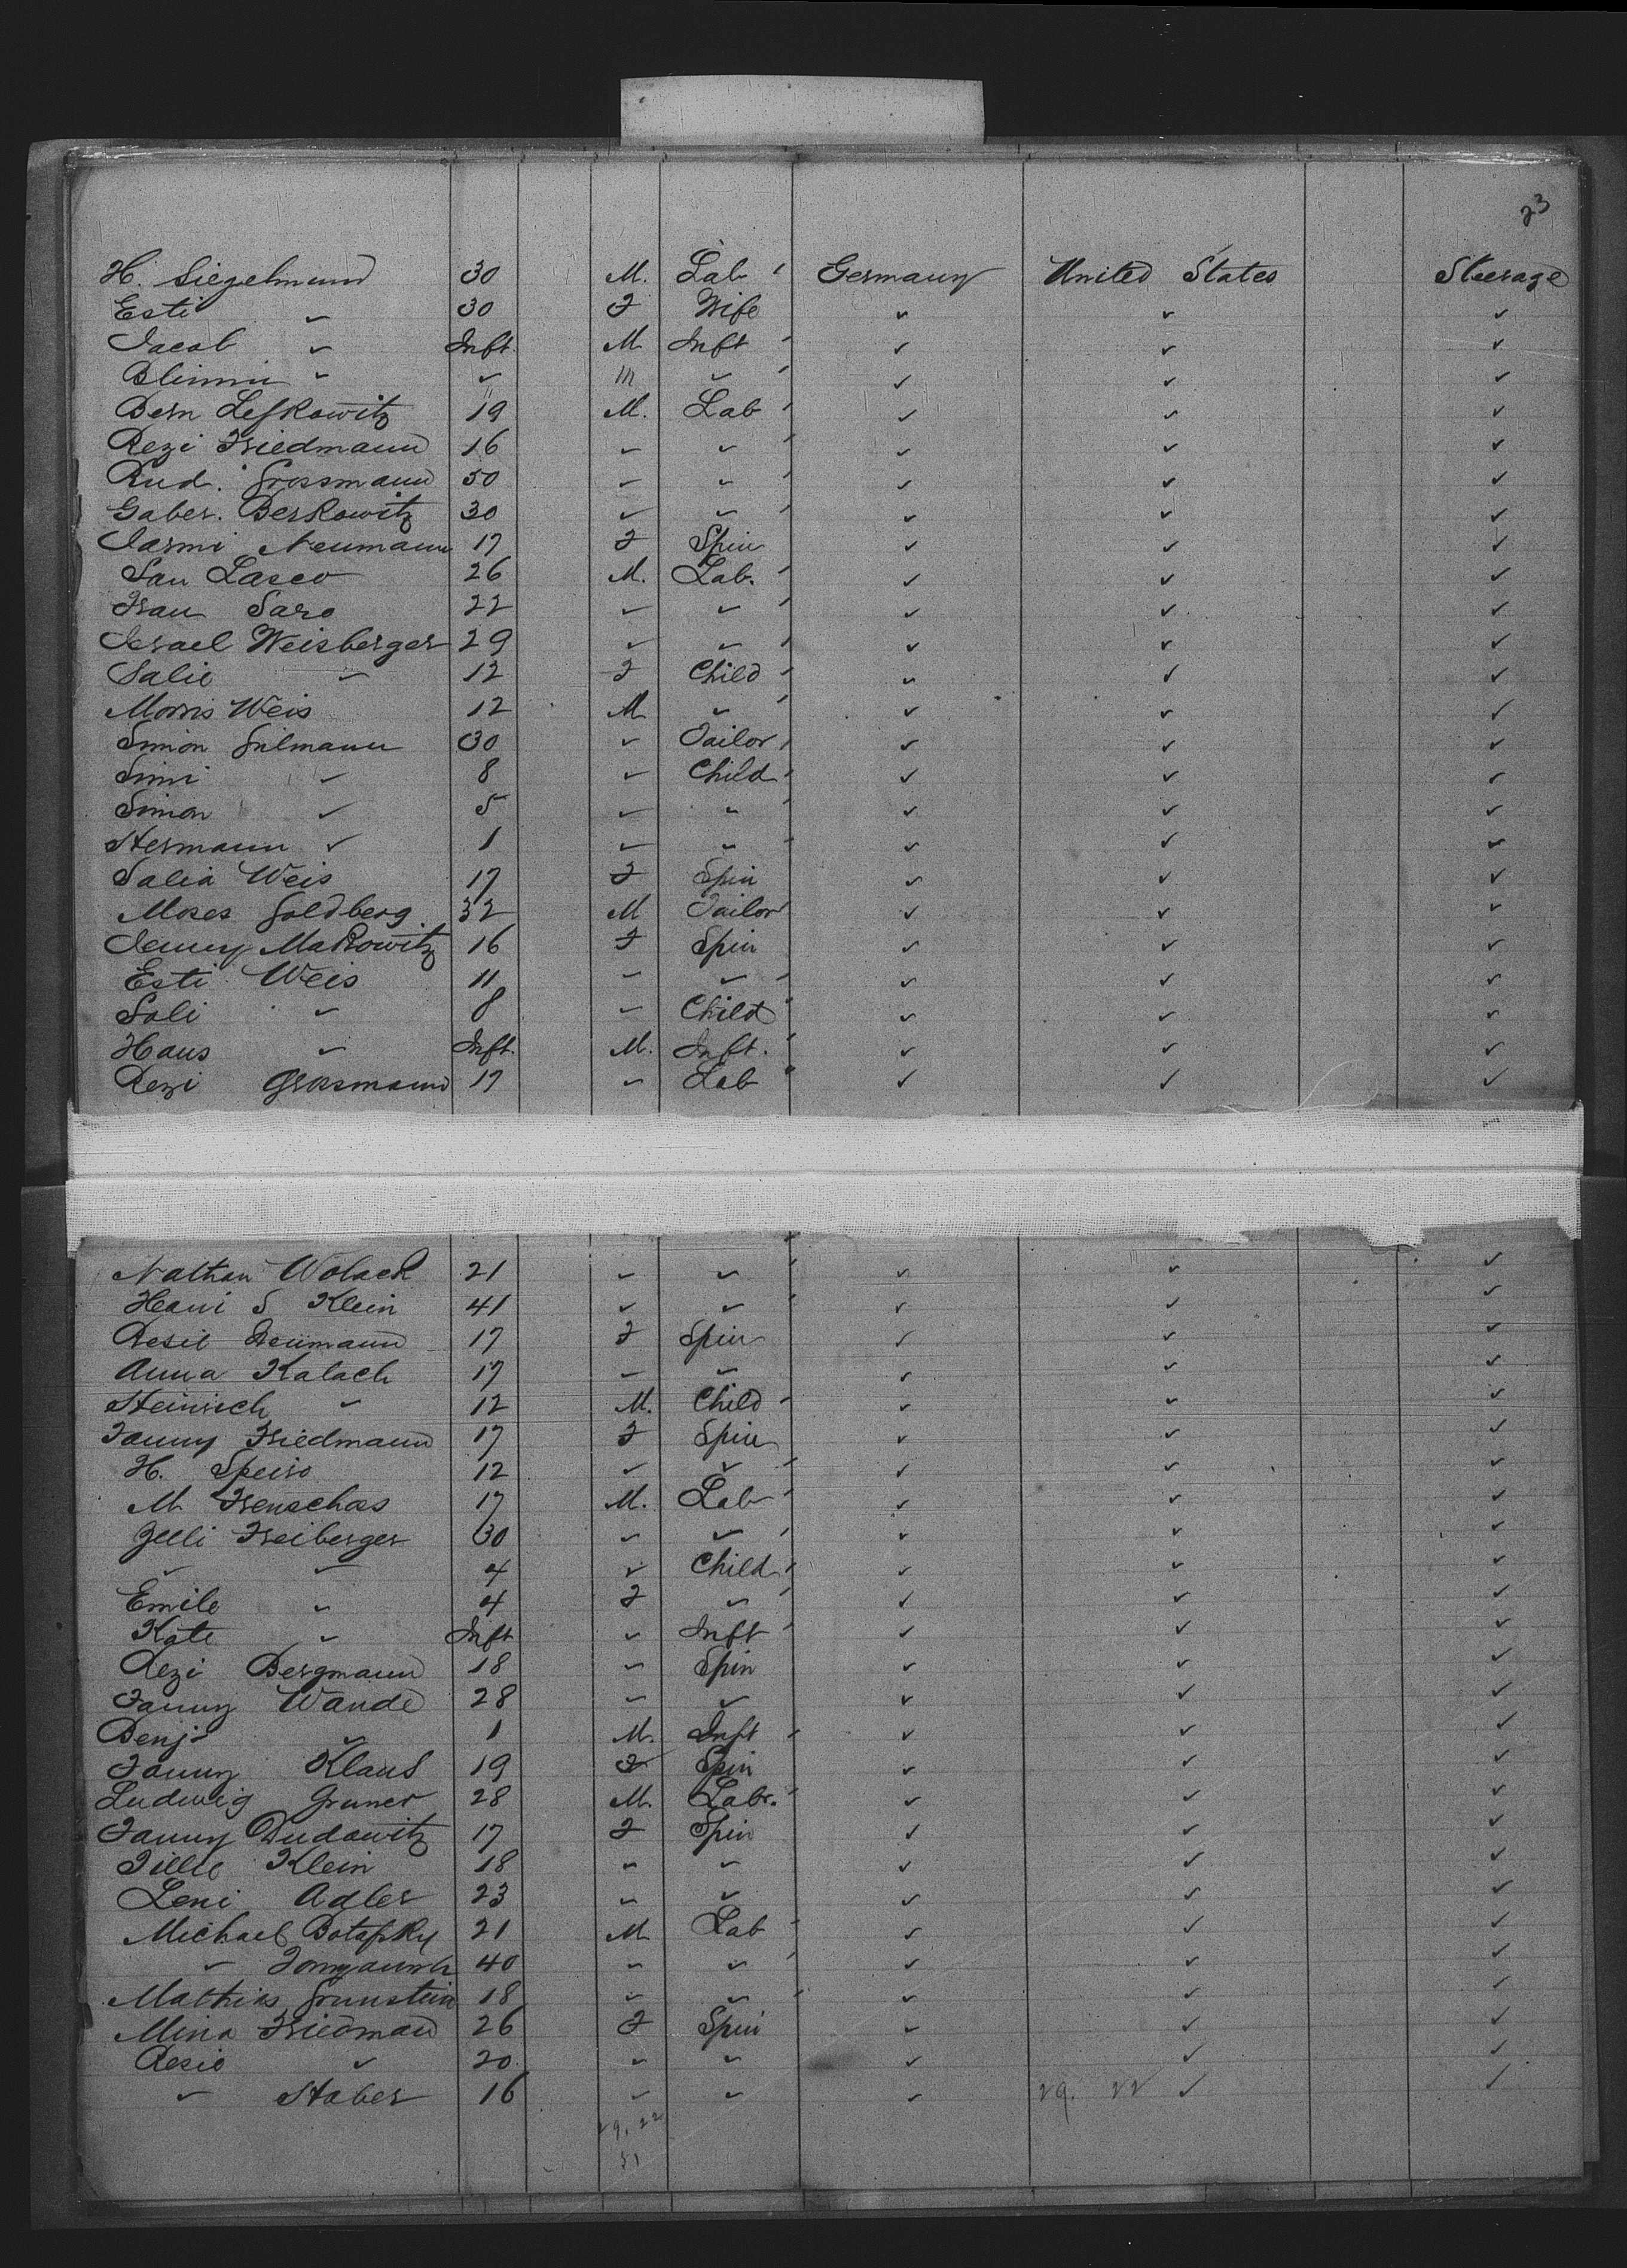 23
H. Siegelmund 30 M. Lab Germany United States Steerage
Esti " 30 F Wife " " "
Jacob " Inft. M Inft " " "
Blimmi " " m " " " "
Bern Lefkowitz 19 M. Lab " " "
Rezi Friedmann 16 " " " " "
Rud. Grossmann 50 " " " " "
Gaber. Berkowitz 30 " " " " "
Jasmi Neumann 17 F Spin " " "
San Lasco 26 M. Lab. " " "
Frau Saro 22 " " " " "
Israel Weisberger 29 " " " " "
Salie " 12 F Child " " "
Morris Weis 12 M " " " "
Simon Gulmann 30 " Tailor " " "
Simi " 8 " Child " " "
Simon " 5 " " " " "
Hermann " 1 " " " " "
Salia Weis 17 F Spin " " "
Moses Goldberg 32 M Tailor " " "
Jenny Makowitz 16 F Spin " " "
Esti Weis 11 " " " " "
Sali " 8 " Child " " "
Hans " Inft. M. Inft. " " "
Rezi Grossmann 17 " Lab " " "
Nathan Wolack 21 " " " " "
Hani S Klein 41 " " " " "
Resil Neumann 17 F Spin " " "
Anna Kalach 17 " " " " "
Heinrich " 12 M. Child " " "
Fanny Friedmann 17 F Spin " " "
H. Speiso 12 " " " " "
M. Frenschas 17 M. Lab " " "
Zelli Freiberger 30 " " " " "
" " 4 " Child " " "
Emile " 4 F " " " "
Kate " Inft " Inft " " "
Rezi Bergmann 18 " Spin " " "
Fanny Wande 28 " " " " "
Benj. " 1 M. Inft " " "
Fanny Klaus 19 F Spin " " "
Ludwig Gruner 28 M. Labr. " " "
Fanny Dudowitz 17 F Spin " " "
Tillie Klein 18 " " " " "
Leni Adler 23 " " " " "
Michael Botafsky 21 M Lab " " "
" 40 " " " " "
Mathias Grunstein 18 " " " " "
Mina Friedman 26 F Spin " " "
Resie " 20 " " " " "
" Staber 16 " " " 29. 22 " "
29. 22
51